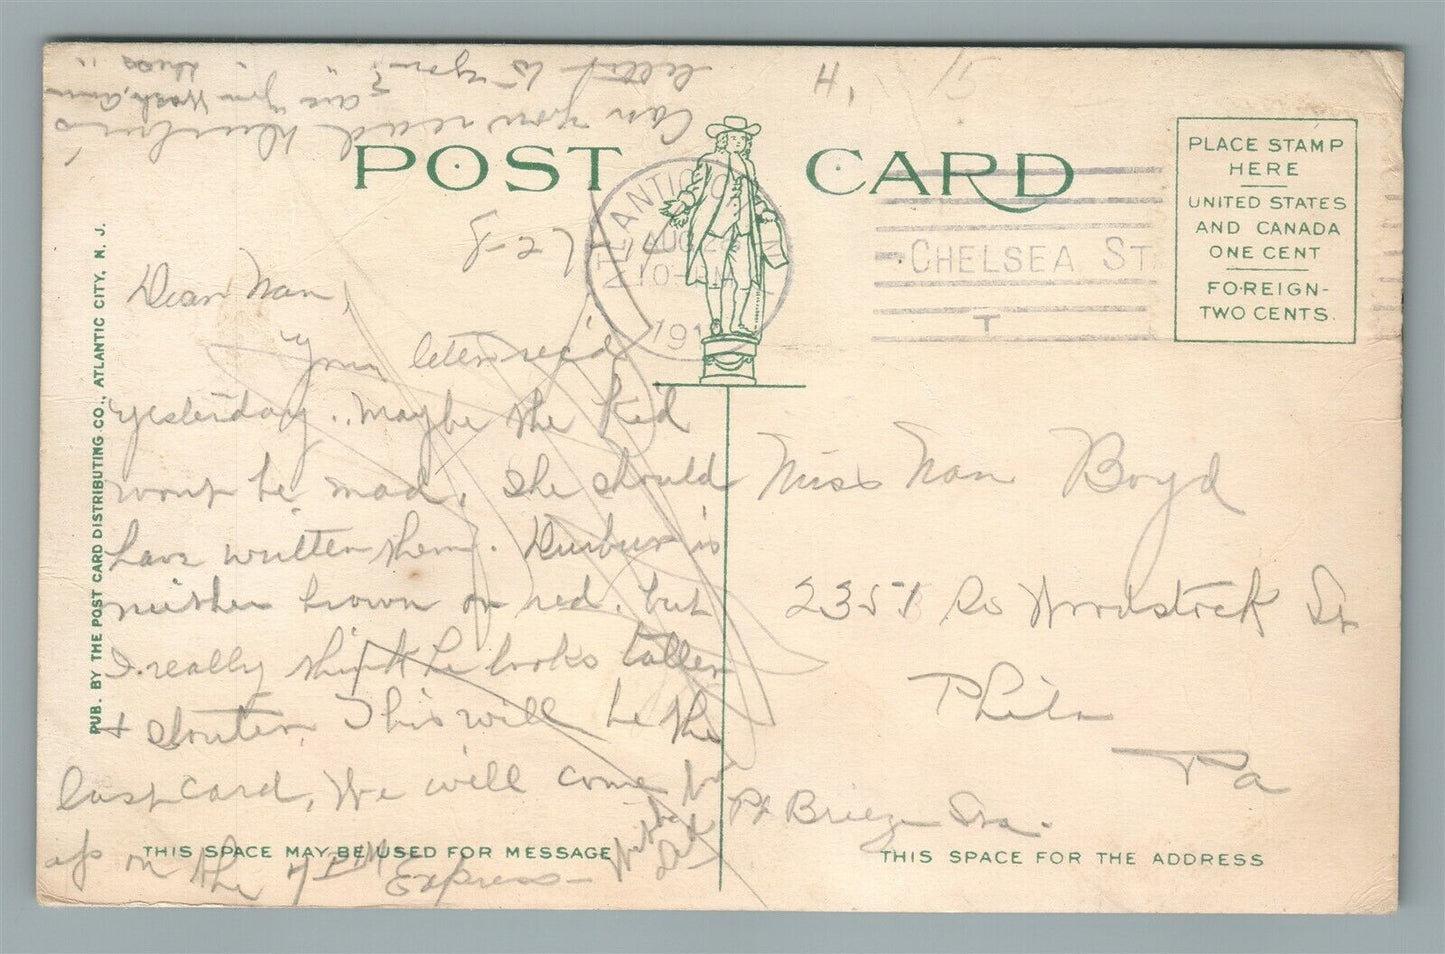 H.
POST CARD
ATLANTIC
AUG 26
10-PM
191
CHELSEA STA
PLACE STAMP
HERE
UNITED STATES
AND CANADA
ONE CENT
FOREIGN-
TWO CENTS.
PUB. BY THE POST CARD DISTRIBUTING CO., ATLANTIC CITY, N. J.
Can you read Durbin's
letter to you?
Dear Nan,
Your letter rec'd
yesterday. Maybe the kid
won't be mad, she should
have written them. Durbin is
neither brown or red. but
I really think he looks taller
+ stouter. This will be the
last card, We will come
up on the 7 P M Express
THIS SPACE MAY BE USED FOR MESSAGE
Miss Nan Boyd
2357 So Woodstock St
Phila
Pa
Pt Breeze Sta.
THIS SPACE FOR THE ADDRESS